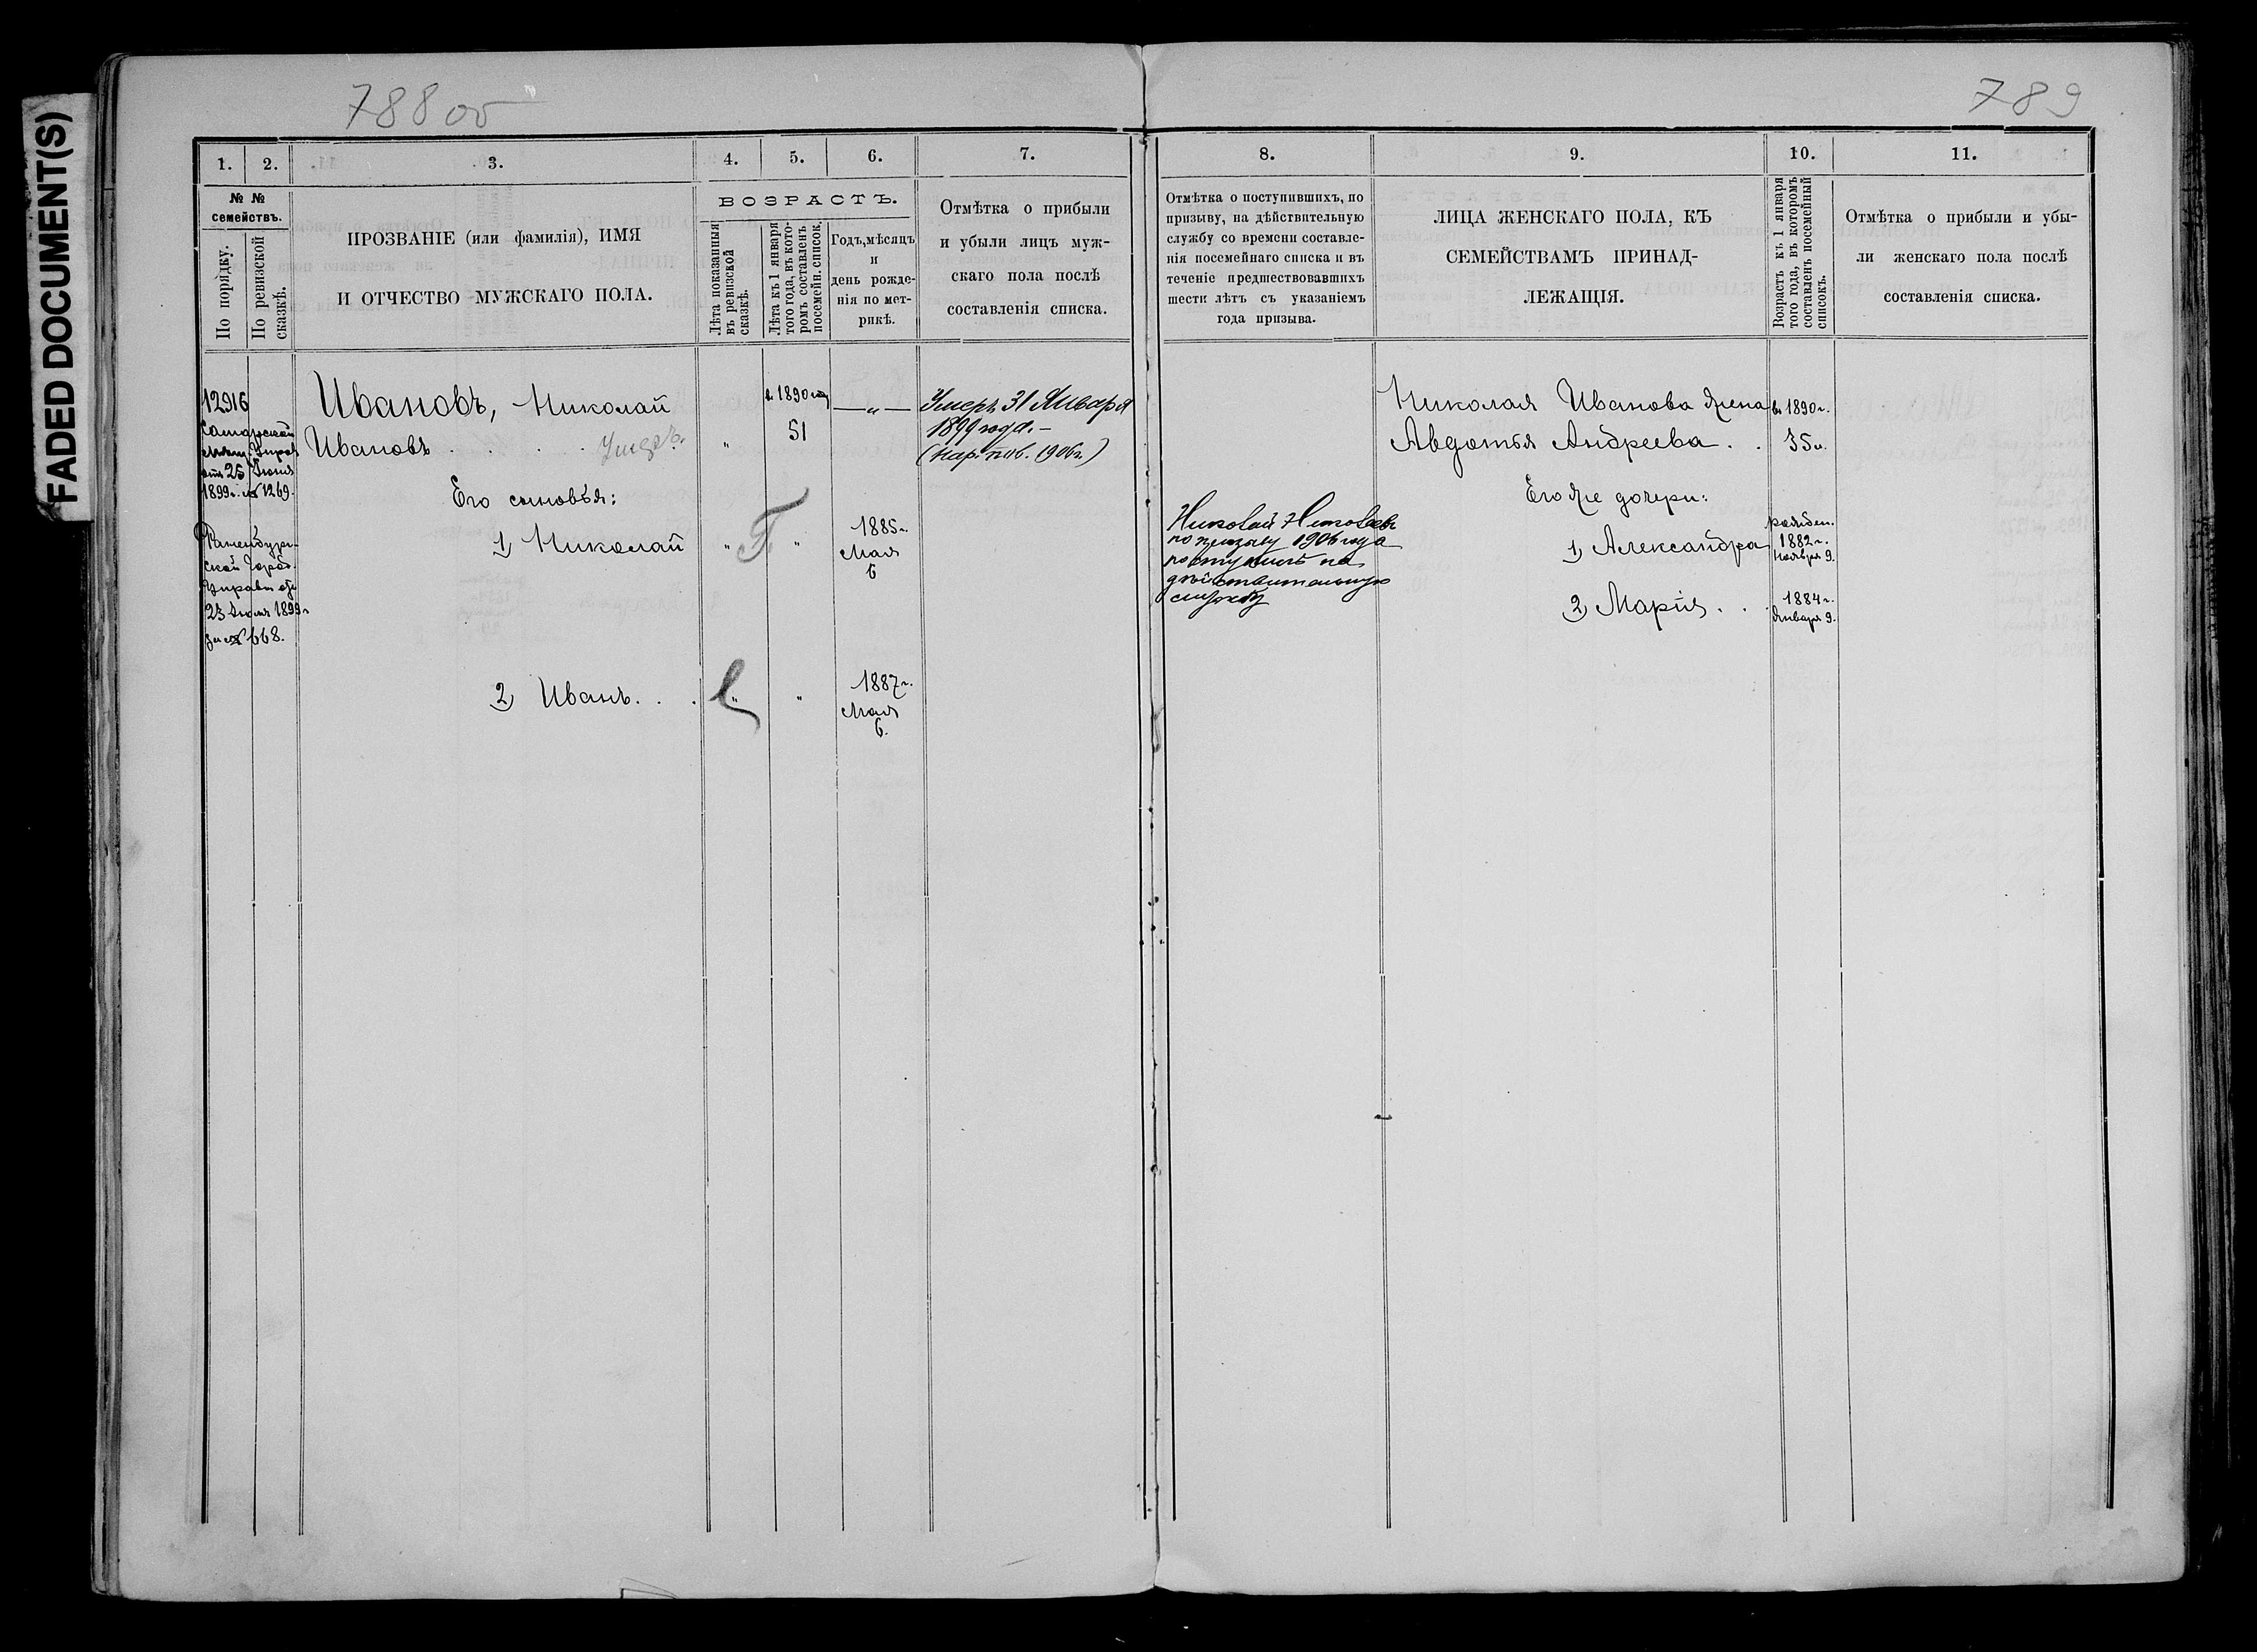 FADED DOCUMENT(S)
788 об
789
1.
2.
3.
4.
5.
6.
7.
8.
9.
10.
11.
№ №
семействъ.
По порядку.
По ревизской
сказкѣ.
ПРОЗВАНІЕ (или фамилія), ИМЯ
И ОТЧЕСТВО МУЖСКАГО ПОЛА.
ВОЗРАСТЪ.
Лѣта показанныя
въ ревизской
сказкѣ.
Лѣта къ 1 января
того года, въ кото-
ромъ составленъ
посемейн. список.
Годъ, мѣсяцъ
и
день рожде-
нія по мет-
рикѣ.
Отмѣтка о прибыли
и убыли лицъ муж-
скаго пола послѣ
составленія списка.
Отмѣтка о поступившихъ, по
призыву, на дѣйствительную
службу со времени составле-
нія посемейнаго списка и въ
теченіе предшествовавшихъ
шести лѣтъ съ указаніемъ
года призыва.
ЛИЦА ЖЕНСКАГО ПОЛА, КЪ
СЕМЕЙСТВАМЪ ПРИНАД-
ЛЕЖАЩІЯ.
Возрастъ къ 1 января
того года, въ которомъ
составленъ посемейный
списокъ.
Отмѣтка о прибыли и убы-
ли женскаго пола послѣ
составленія списка.
12916
Самарской
мѣщ. Управ
отъ 25 Іюня
1899г. № 1269.
Раненбург-
ской Город.
Управы отъ
23 Іюля 1899г
за № 668.
Ивановъ, Николай
Ивановъ . . . . Умеръ.
Его сыновья:
1) Николай
2) Иванъ. . .
Г.
"
"
"
"
"
в 1890 году
51
—"—
1885г.
Мая
6
1887г.
Мая
6.
Умеръ 31 Января
1899 года.—
(1906г.)
Николай Николаевъ
по призыву 1906 года
поступилъ на
дѣйствительную
службу
Николая Иванова жена
Авдотья Андреева . .
Его же дочери:
1) Александра
2) Марія . . .
въ 1890г.
35л.
рожден.
1882г.
Ноября 9.
1884г.
Января 9.